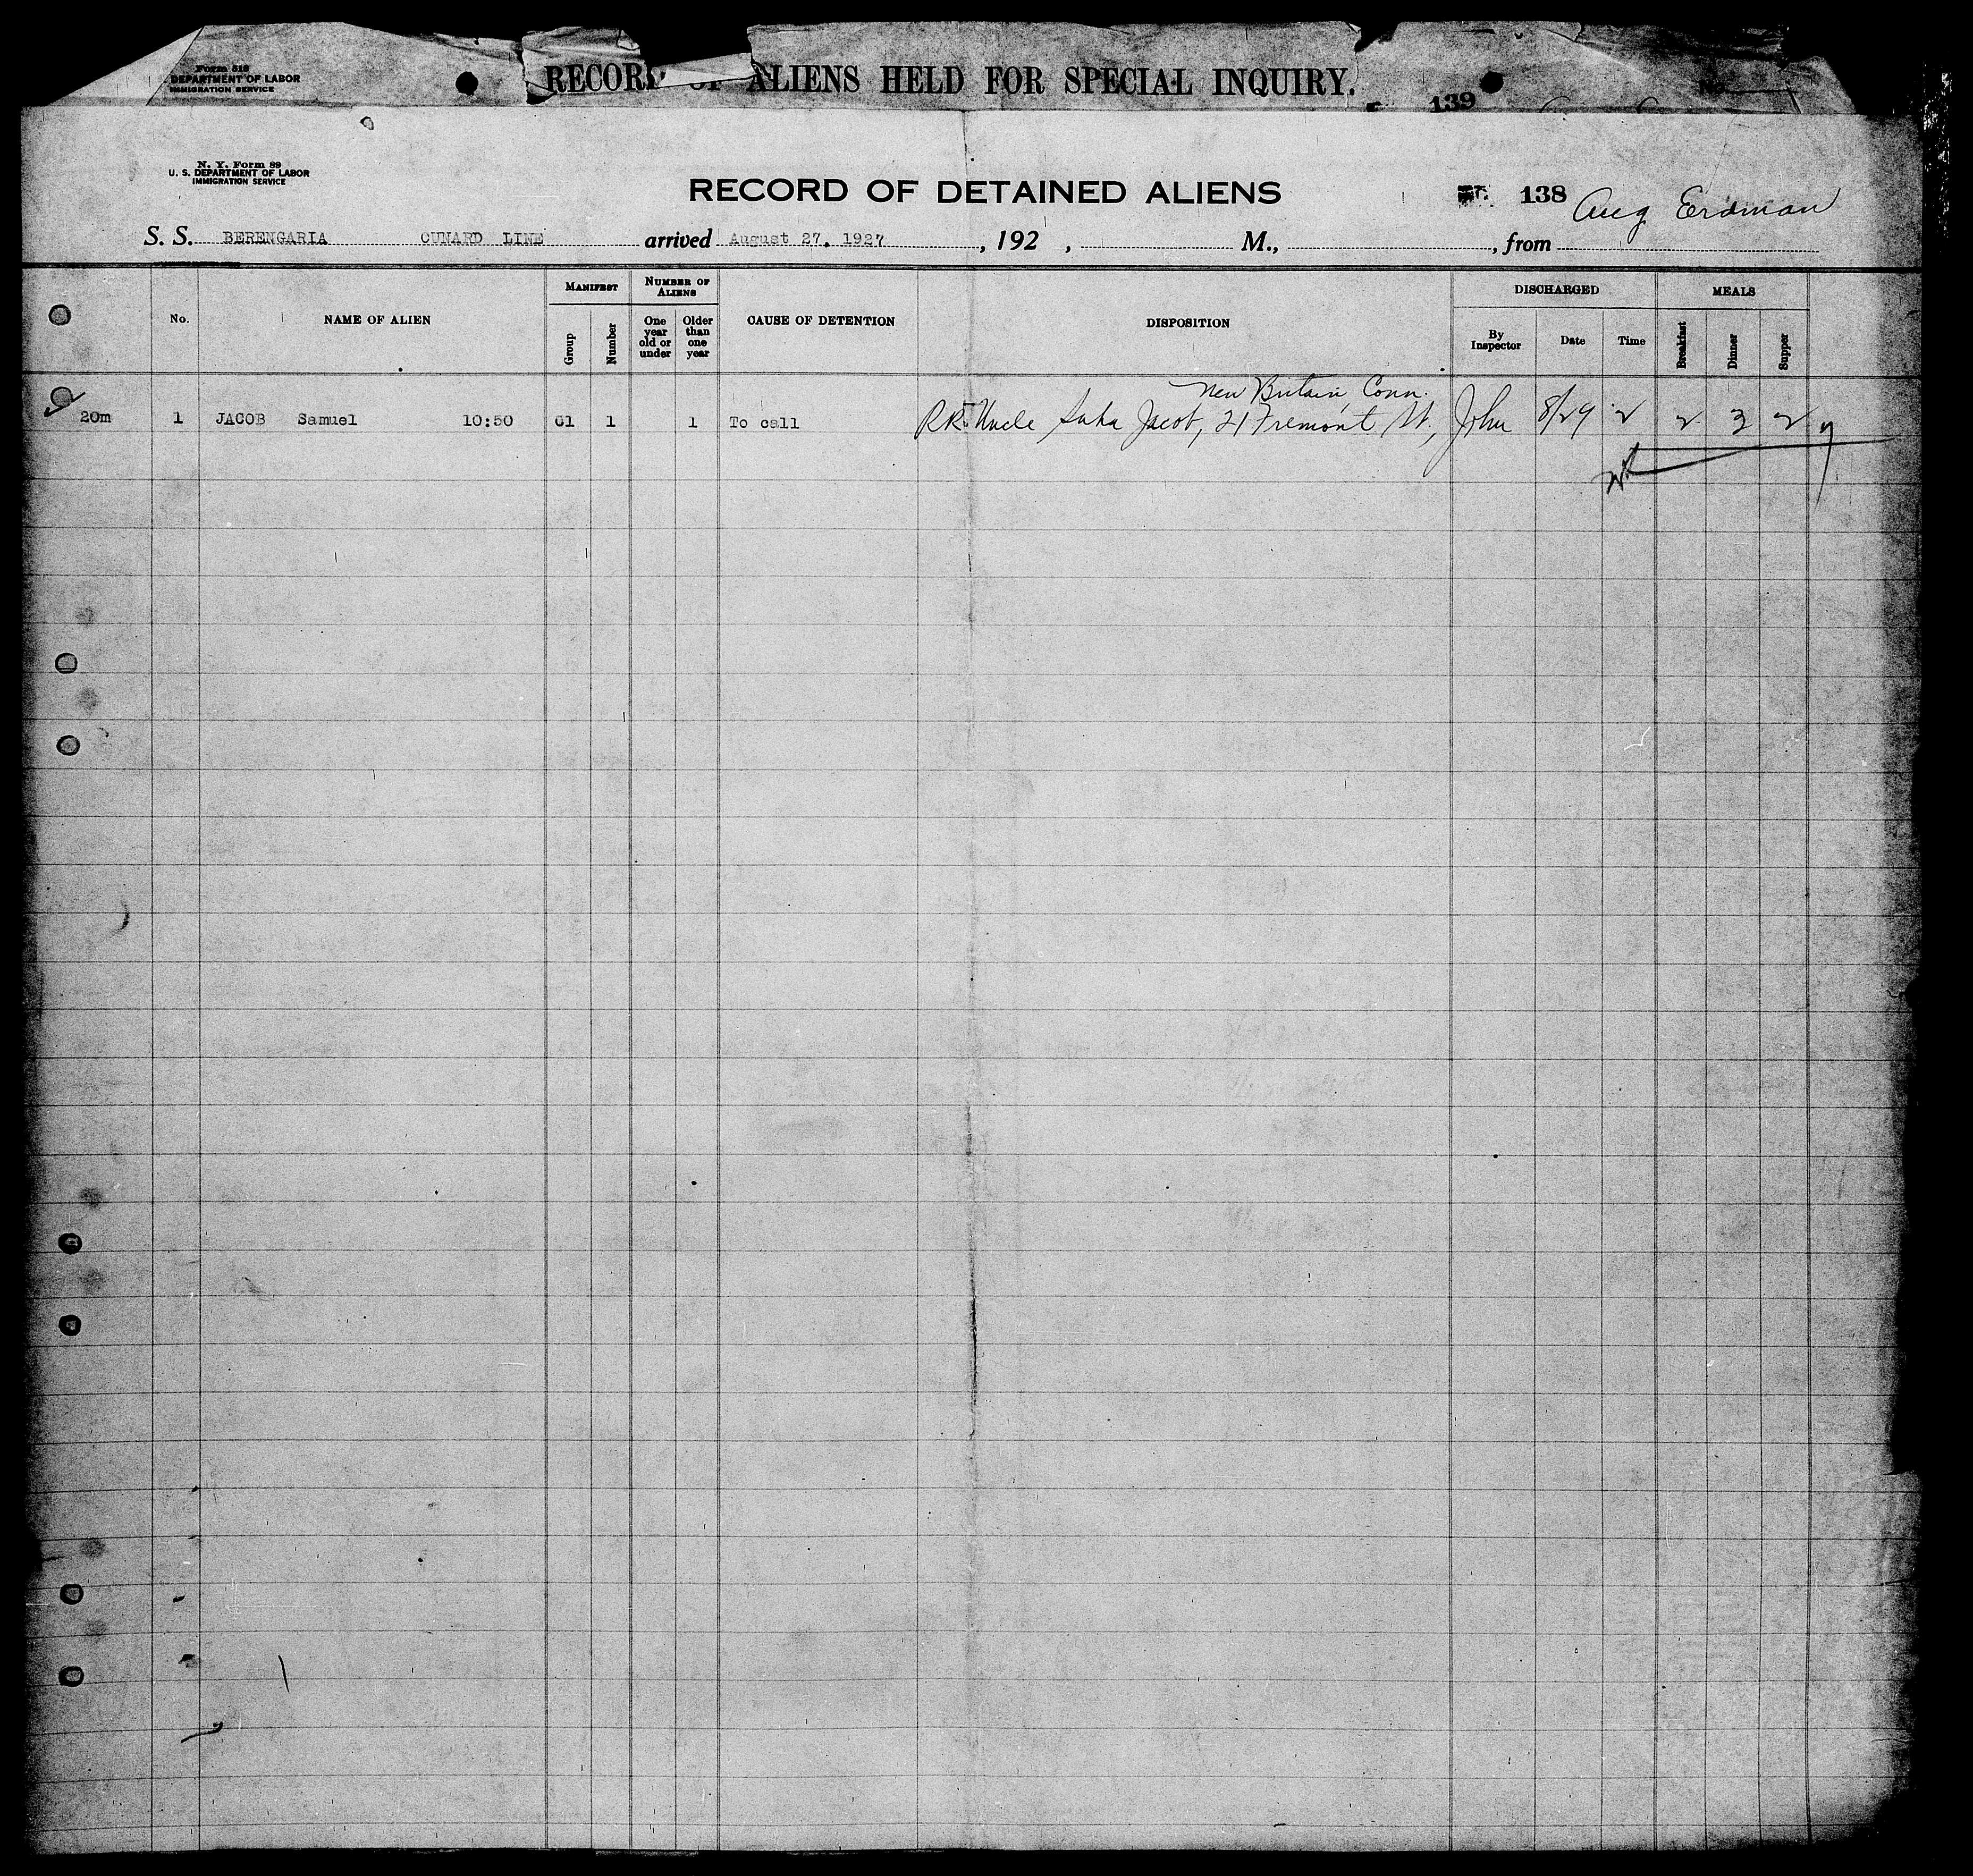 Form 518
DEPARTMENT OF LABOR
IMMIGRATION SERVICE
RECORD OF ALIENS HELD FOR SPECIAL INQUIRY.
No.
139
N. Y. Form 89
U. S. DEPARTMENT OF LABOR
IMMIGRATION SERVICE
RECORD OF DETAINED ALIENS
138 Aug Erdman
S. S. BERENGARIA CUNARD LINE arrived August 27, 1927, 192 , M., , from
No. NAME OF ALIEN MANIFEST Group Number NUMBER OF ALIENS One year old or under Older than one year CAUSE OF DETENTION DISPOSITION DISCHARGED By Inspector Date Time MEALS Breakfast Dinner Supper
New Britain, Conn.
20m 1 JACOB Samuel 10:50 C1 1 1 To call RR Uncle Jacob, 21 Fremont St., John 8/29 2 2 3 2 7